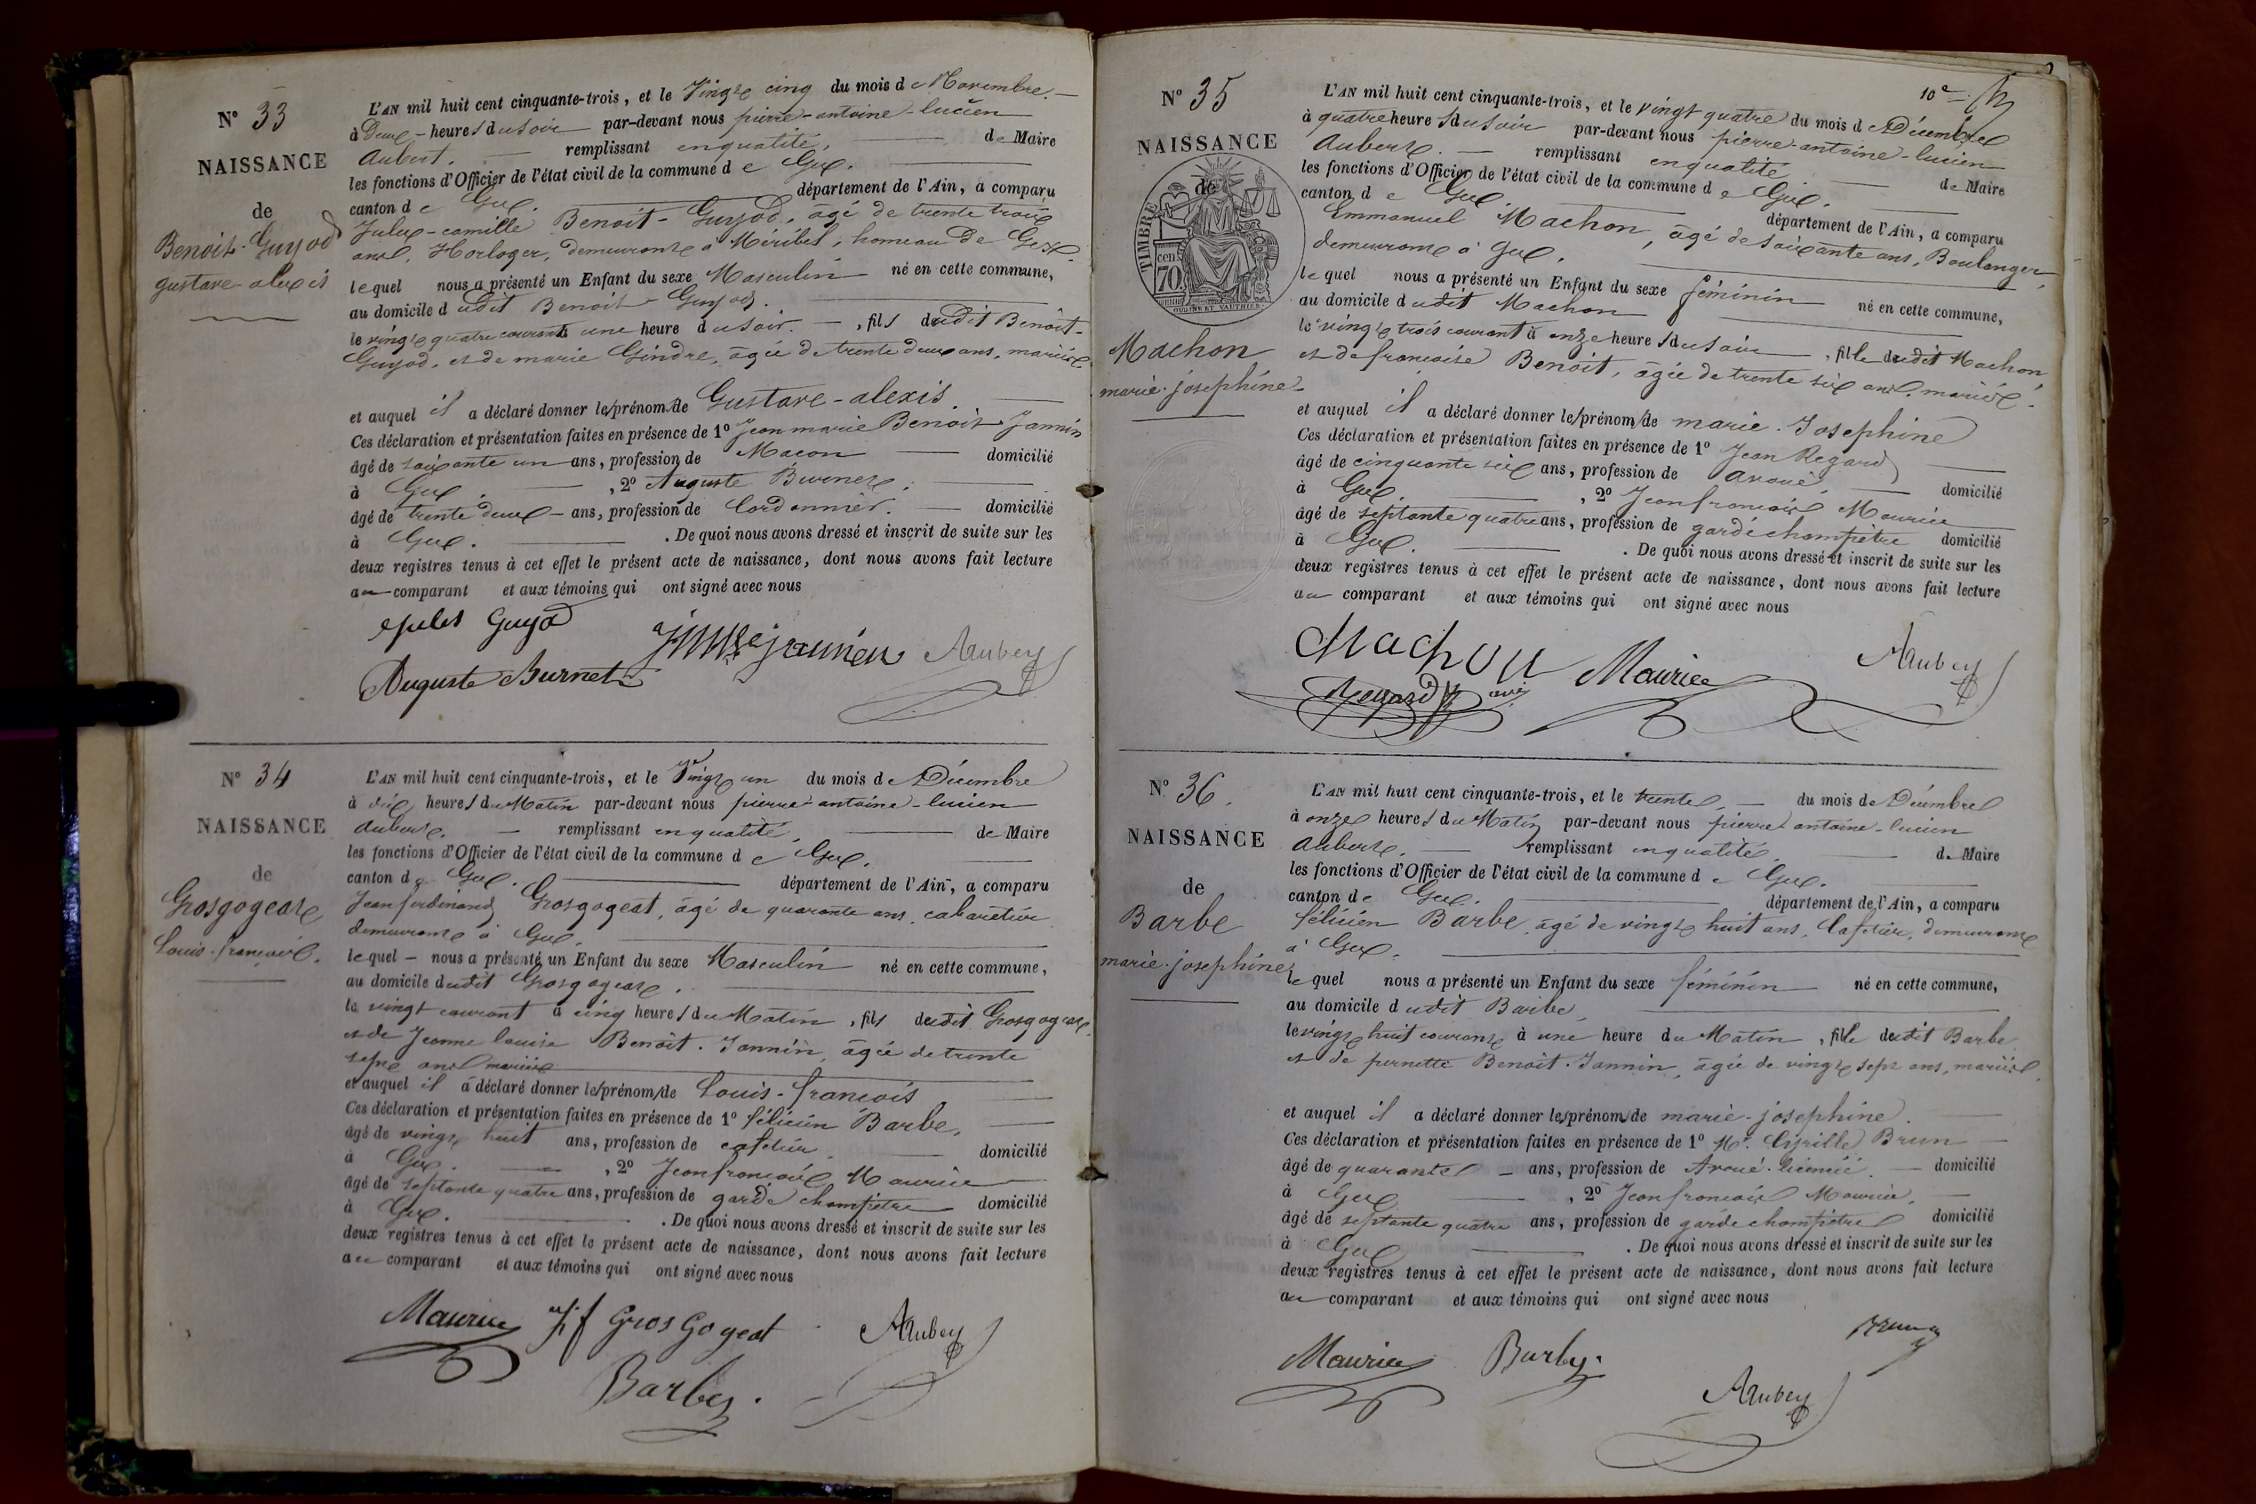 N° 33
NAISSANCE
de
Benoit-Guyod
gustave-alexis
L'AN mil huit cent cinquante-trois, et le Vingt cinq du mois de Novembre.
à Deux heures du soir par-devant nous pierre-antoine-lucien
Aubert. remplissant en qualité, de Maire
les fonctions d'Officier de l'état civil de la commune de Gex.
canton de Gex. département de l'Ain, a comparu
Jules-camille Benoit-Guyod, âgé de trente trois
ans, Horloger, demeurant à Méribel, hameau de Gex.
lequel nous a présenté un Enfant du sexe Masculin né en cette commune,
au domicile dudit Benoit-Guyod.
le vingt quatre courant à une heure du soir. , fils dudit Benoit-
Guyod, et de marie Gindre, âgée de trente deux ans, mariés.
et auquel il a déclaré donner les prénoms de Gustave-alexis.
Ces déclaration et présentation faites en présence de 1° Jean marie Benoit Jannin
âgé de soixante un ans, profession de Macon domicilié
à Gex. , 2° Auguste Burnet,
âgé de trente deux ans, profession de Cordonnier. domicilié
à Gex. . De quoi nous avons dressé et inscrit de suite sur les
deux registres tenus à cet effet le présent acte de naissance, dont nous avons fait lecture
au comparant et aux témoins qui ont signé avec nous
Jules Guyod
Auguste Burnet
Aubert
N° 34
NAISSANCE
de
Grosgogeat
Louis-françois.
L'AN mil huit cent cinquante-trois, et le Vingt un du mois de Décembre
à dix heures du Matin par-devant nous pierre-antoine-lucien
Aubert. remplissant en qualité, de Maire
les fonctions d'Officier de l'état civil de la commune de Gex.
canton de Gex. département de l'Ain, a comparu
Jean ferdinand Grosgogeat, âgé de quarante ans, cabaretier
demeurant à Gex.
lequel nous a présenté un Enfant du sexe Masculin né en cette commune,
au domicile dudit Grosgogeat.
le vingt courant à cinq heures du Matin, fils dudit Grosgogeat
et de Jeanne louise Benoit-Jannin, âgée de trente
sept ans mariés
et auquel il a déclaré donner les prénoms de Louis-françois
Ces déclaration et présentation faites en présence de 1° félicien Barbe,
âgé de vingt huit ans, profession de cafetier. domicilié
à Gex. , 2° Jean françois Maurice
âgé de septante quatre ans, profession de garde champêtre domicilié
à Gex. . De quoi nous avons dressé et inscrit de suite sur les
deux registres tenus à cet effet le présent acte de naissance, dont nous avons fait lecture
au comparant et aux témoins qui ont signé avec nous
Maurice jf Grosgogeat Aubert
Barbe.
10e
N° 35
NAISSANCE
de
TIMBRE
70
cen.
OUDINE ET VAUTHIER.
Machon
marie-joséphine
L'AN mil huit cent cinquante-trois, et le vingt quatre du mois de Décembre
à quatre heures du soir par-devant nous pierre-antoine-lucien
Aubert. remplissant en qualité de Maire
les fonctions d'Officier de l'état civil de la commune de Gex.
canton de Gex. département de l'Ain, a comparu
Emmanuel Machon, âgé de soixante ans, Boulanger,
demeurant à Gex.
lequel nous a présenté un Enfant du sexe féminin né en cette commune,
au domicile dudit Machon
le vingt trois courant à onze heures du soir, fille dudit Machon,
et de françoise Benoit, âgée de trente six ans, mariés.
et auquel il a déclaré donner les prénoms de marie-Joséphine
Ces déclaration et présentation faites en présence de 1° Jean Regard
âgé de cinquante six ans, profession de avoué, domicilié
à Gex. , 2° Jean françois Maurice
âgé de septante quatre ans, profession de garde champêtre domicilié
à Gex. . De quoi nous avons dressé et inscrit de suite sur les
deux registres tenus à cet effet le présent acte de naissance, dont nous avons fait lecture
au comparant et aux témoins qui ont signé avec nous
Machon Maurice Aubert
Regard
N° 36.
NAISSANCE
de
Barbe
marie-joséphine
L'AN mil huit cent cinquante-trois, et le trente du mois de Décembre
à onze heures du Matin par-devant nous pierre-antoine-lucien
Aubert. remplissant en qualité, de Maire
les fonctions d'Officier de l'état civil de la commune de Gex.
canton de Gex. département de l'Ain, a comparu
félicien Barbe, âgé de vingt huit ans, Cafetier, demeurant
à Gex.
lequel nous a présenté un Enfant du sexe féminin né en cette commune,
au domicile dudit Barbe,
le vingt huit courant à une heure du Matin, fille dudit Barbe
et de pernette Benoit-Jannin, âgée de vingt sept ans, mariés.
et auquel il a déclaré donner les prénoms de marie-joséphine.
Ces déclaration et présentation faites en présence de 1° Mr. Cyrille Brun
âgé de quarante ans, profession de Avoué-licencié. domicilié
à Gex , 2° Jean françois Maurice,
âgé de septante quatre ans, profession de garde champêtre domicilié
à Gex . De quoi nous avons dressé et inscrit de suite sur les
deux registres tenus à cet effet le présent acte de naissance, dont nous avons fait lecture
au comparant et aux témoins qui ont signé avec nous
Maurice Barbe. Brun
Aubert